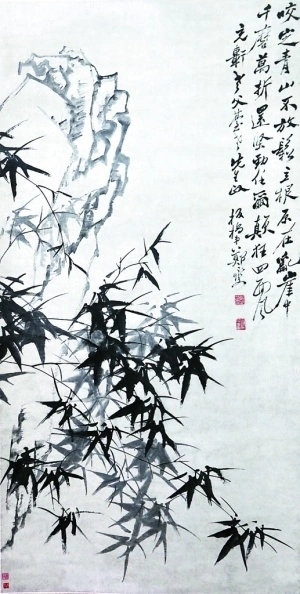 咬定青山不放鬆立根原在亂崖中
千磨萬折還堅勁任爾顛狂四面風
父臺先生政
板橋鄭燮